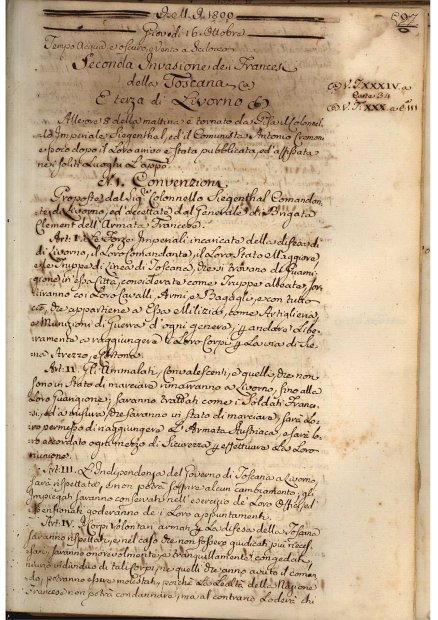 Dell' A. 1800
Giovedì 16. Ottobre
Tempo Acqua e oscuro, e vento a Scilocco
Seconda Invasione de i Francesi
della Toscana (a
E terza di Livorno (b
(a) V. T. XXXIV. a
Carte 34
(b) V. T. XXX. a c. 111
Alle ore 8 della mattina è tornato da Pisa il Colonnel-
lo Imperiale Siegenthal, ed il Comunista Antonio Cremoni
e poco dopo il Loro arrivo è stata pubblicata, ed affissata
ne i soliti Luoghi L'appo
N. 1. Convenzioni
Proposte dal Sig.r Colonnello Siegenthal Comandan-
te di Livorno, ed accettate dal Generale di Brigata
Clement dell'Armata Francese.
Art: I. Le Forze Imperiali incaricate della difesa di
di Livorno, il Loro Comandante, il Loro Stato Maggiore
e le Truppe di Linea di Toscana, che si trovano di Guarni-
gione in essa Città, considerate come Truppe alleate, sor-
tiranno coi Loro Cavalli, Armi, e Bagagli, e con tutto
ciò, che appartiene a Esse Milizie, come Artiglieria,
e Munizioni di Guerra d'ogni genere, e andare Libe-
ramente a raggiungere il Loro Corpo p. la via di Sie-
na Arezzo, e Cortona
Art: II. Gli Ammalati, Convalescenti, e quelli, che non
sono in stato di marciare rimarranno a Livorno, fino alla
Loro Guarigione; saranno trattati come i Soldati France-
si, ed a misura, che saranno in stato di marciare, sarà Lo-
ro permesso di raggiungere L'Armata Austriaca, e sarà Lo-
ro accordato ogni mezzo di Sicurezza p. effettuare la Loro
riunione.
Art: III. L'Indipendenza del Governo di Toscana a Livorno,
sarà rispettata, e non potrà soffrire alcun cambiamento, gli
Impiegati saranno conservati nell'esercizio di Loro Offizj, ed
i Pensionati goderanno de i Loro appuntamenti.
Art: IV. I Corpi Volontari armati p. La difesa della Toscana
saranno rispettati, e nel caso che non fossero giudicati più neces-
sarj, saranno onorevolmente, e tranquillamente congedati,
niuno individuo di tali Corpi, ne quelli che anno avuto il coman-
do, potranno essere molestati, poiché La Lealtà della Nazione
Francese non potrà condannare, ma al contrario Loderà chi